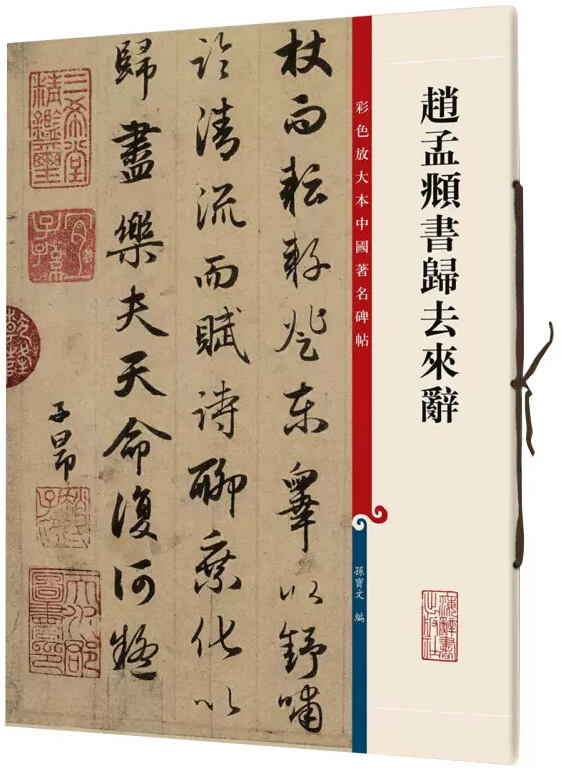 趙孟頫書歸去來辭
彩色放大本中國著名碑帖
孫寶文 編
杖而耘耔登東皋以舒嘯
臨清流而賦詩聊乘化以
歸盡樂夫天命復何疑
子昂
三希堂
精鑑璽
宜
子孫
趙氏
子昂